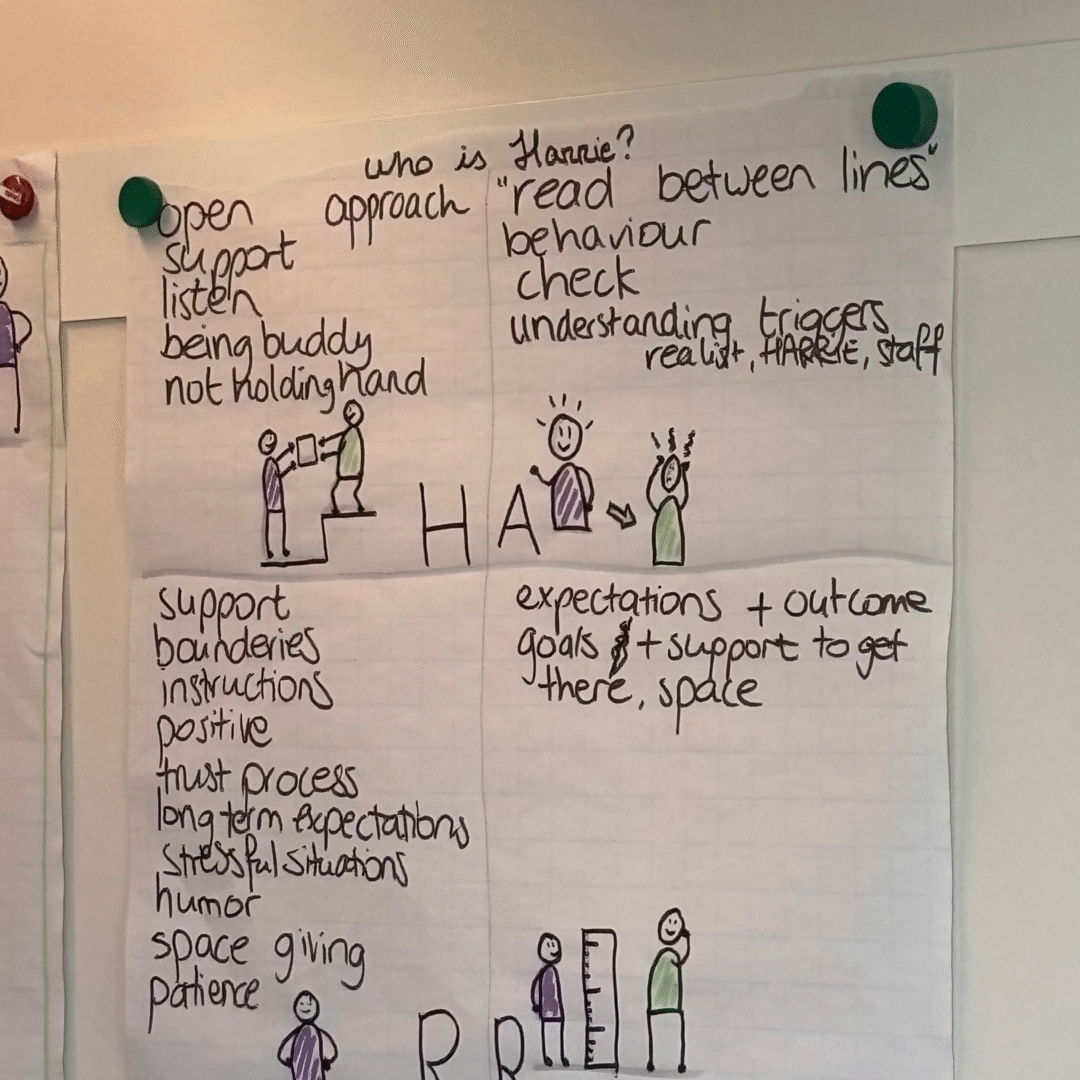 who is Harrie?
open approach
support
listen
being buddy
not holding hand
"read between lines"
behaviour
check
understanding triggers
realist, HARRIE, staff
H A
support
bounderies
instructions
positive
trust process
long term expectations
stressful situations
humor
space giving
patience
expectations + outcome
goals + support to get
there, space
R R